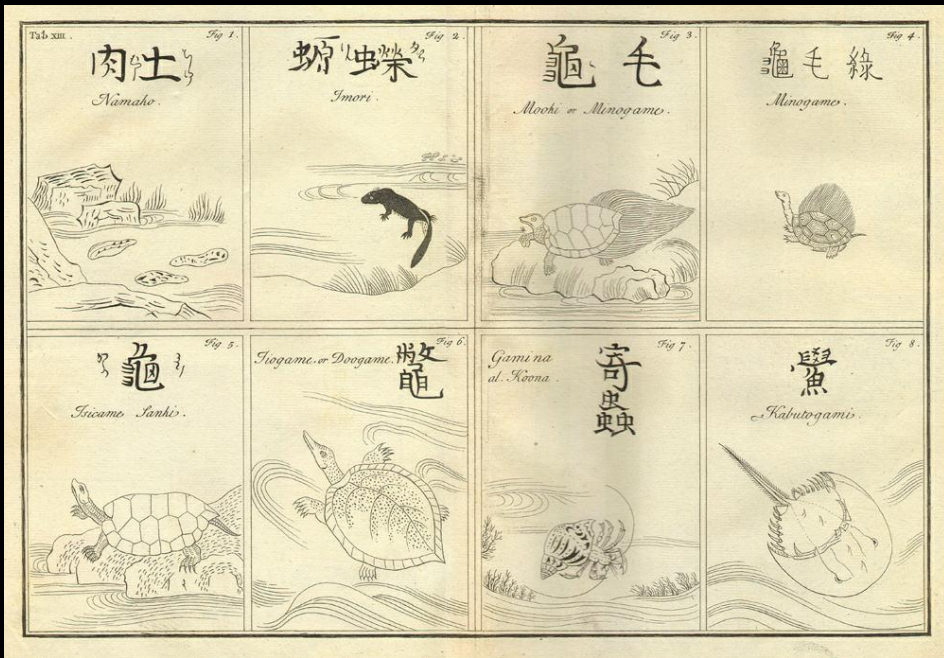 Tab XIII.
Fig 1.
肉土
Namako.
Fig 2.
螈蠑
Imori.
Fig 3.
龜毛
Mooki or Minogame.
Fig 4.
龜毛綠
Minogame.
Fig 5.
龜
Isicame Sanki.
Fig 6.
Jiogame, or Doogame.
鼈
Fig 7.
Gami na
al. Koona.
寄
蟲
Fig 8.
鱟
Kabutogami.